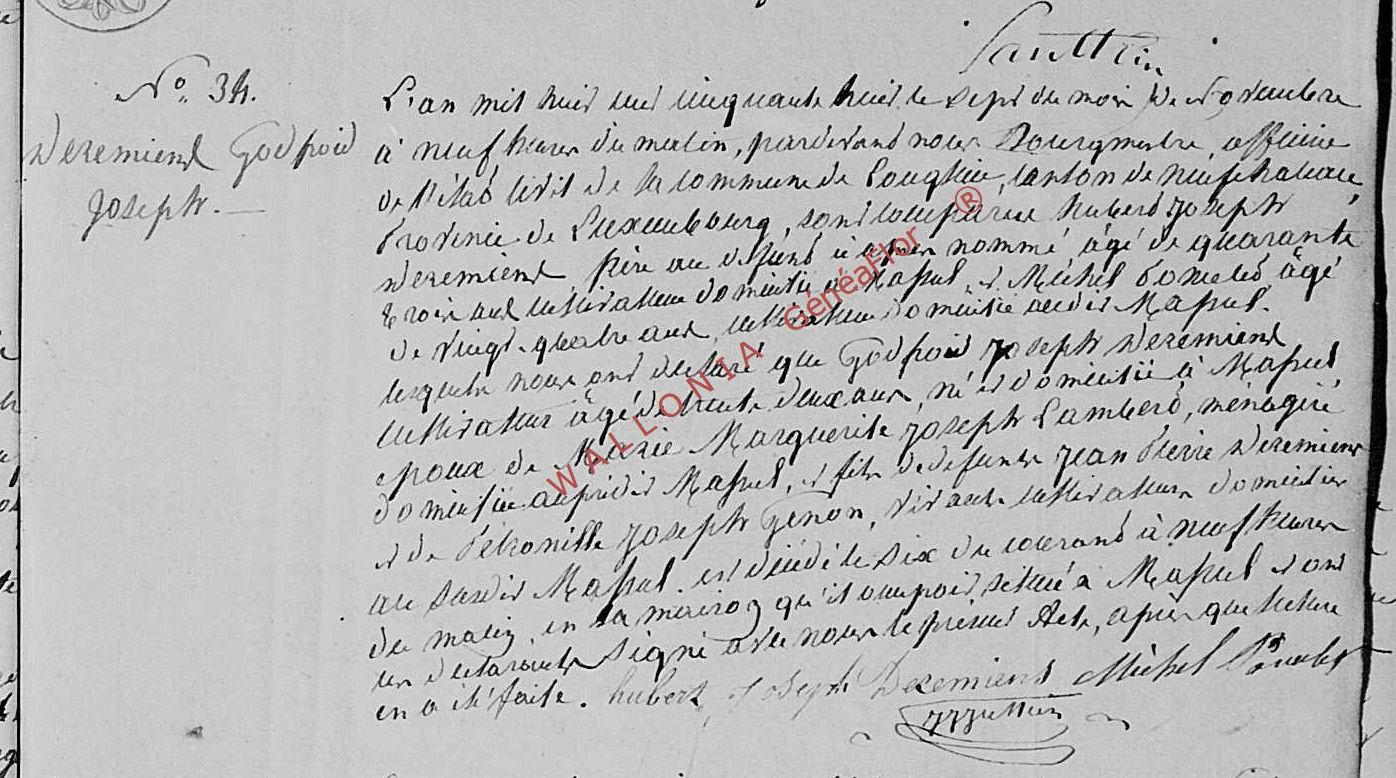 N° 34.
Deremiens Godfroid
Joseph. —
L'an mil huit cent cinquante huit le sept du mois de Novembre
à neuf heures du matin, pardevant nous Bourgmestre, officier
de l'état civil de la commune de Longlier, canton de neufchateau,
Province de Luxembourg, sont comparus hubert Joseph
Deremiens, frère au défunt ci après nommé âgé de quarante
trois ans cultivateur domicilié à Massul, et Michel Poncelet âgé
de vingt-quatre ans, cultivateur domicilié audit Massul.
lesquels nous ont déclaré que Godfroid Joseph Deremiens
cultivateur âgé de trente deux ans, né et domicilié à Massul
époux de Marie Marguerite Joseph Lambert, ménagère
domiciliée au prédit Massul, et fils de defunts Jean Pierre Deremiens
et de Pétronille Joseph Genon, vivants cultivateurs domiciliés
au susdit Massul. est décédé le six du courant à neuf heures
du matin, en la maison qu'il occupait située à Massul et ont
les déclarants signé avec nous le présent Acte, après que lecture
en a été faite. hubert Joseph Deremiens Michel Poncelet
WALLONIA GénéaFlor ®